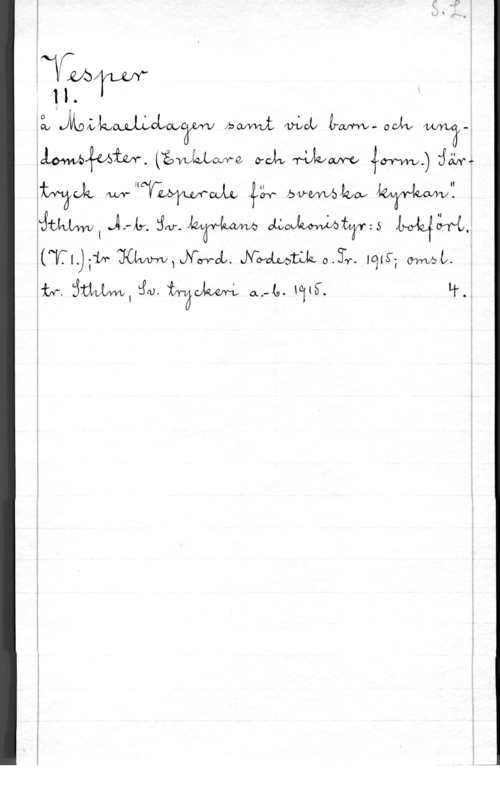 S. L.
Vesper
11.
å Mikaelidagen samt vid barn- och ung-
domsfester. (Enklare och rikare form.) Sär-
tryck ur "Vesperale för svenska kyrkan".
Sthlm, A.-b. Sv. kyrkans diakonistyr:s bokförl.
(V. 1.); tr Khvn, Nord. Nodestik o. Tr. 1915; omsl.
tr. Sthlm, Sv. tryckeri a.-b. 1915. 4.